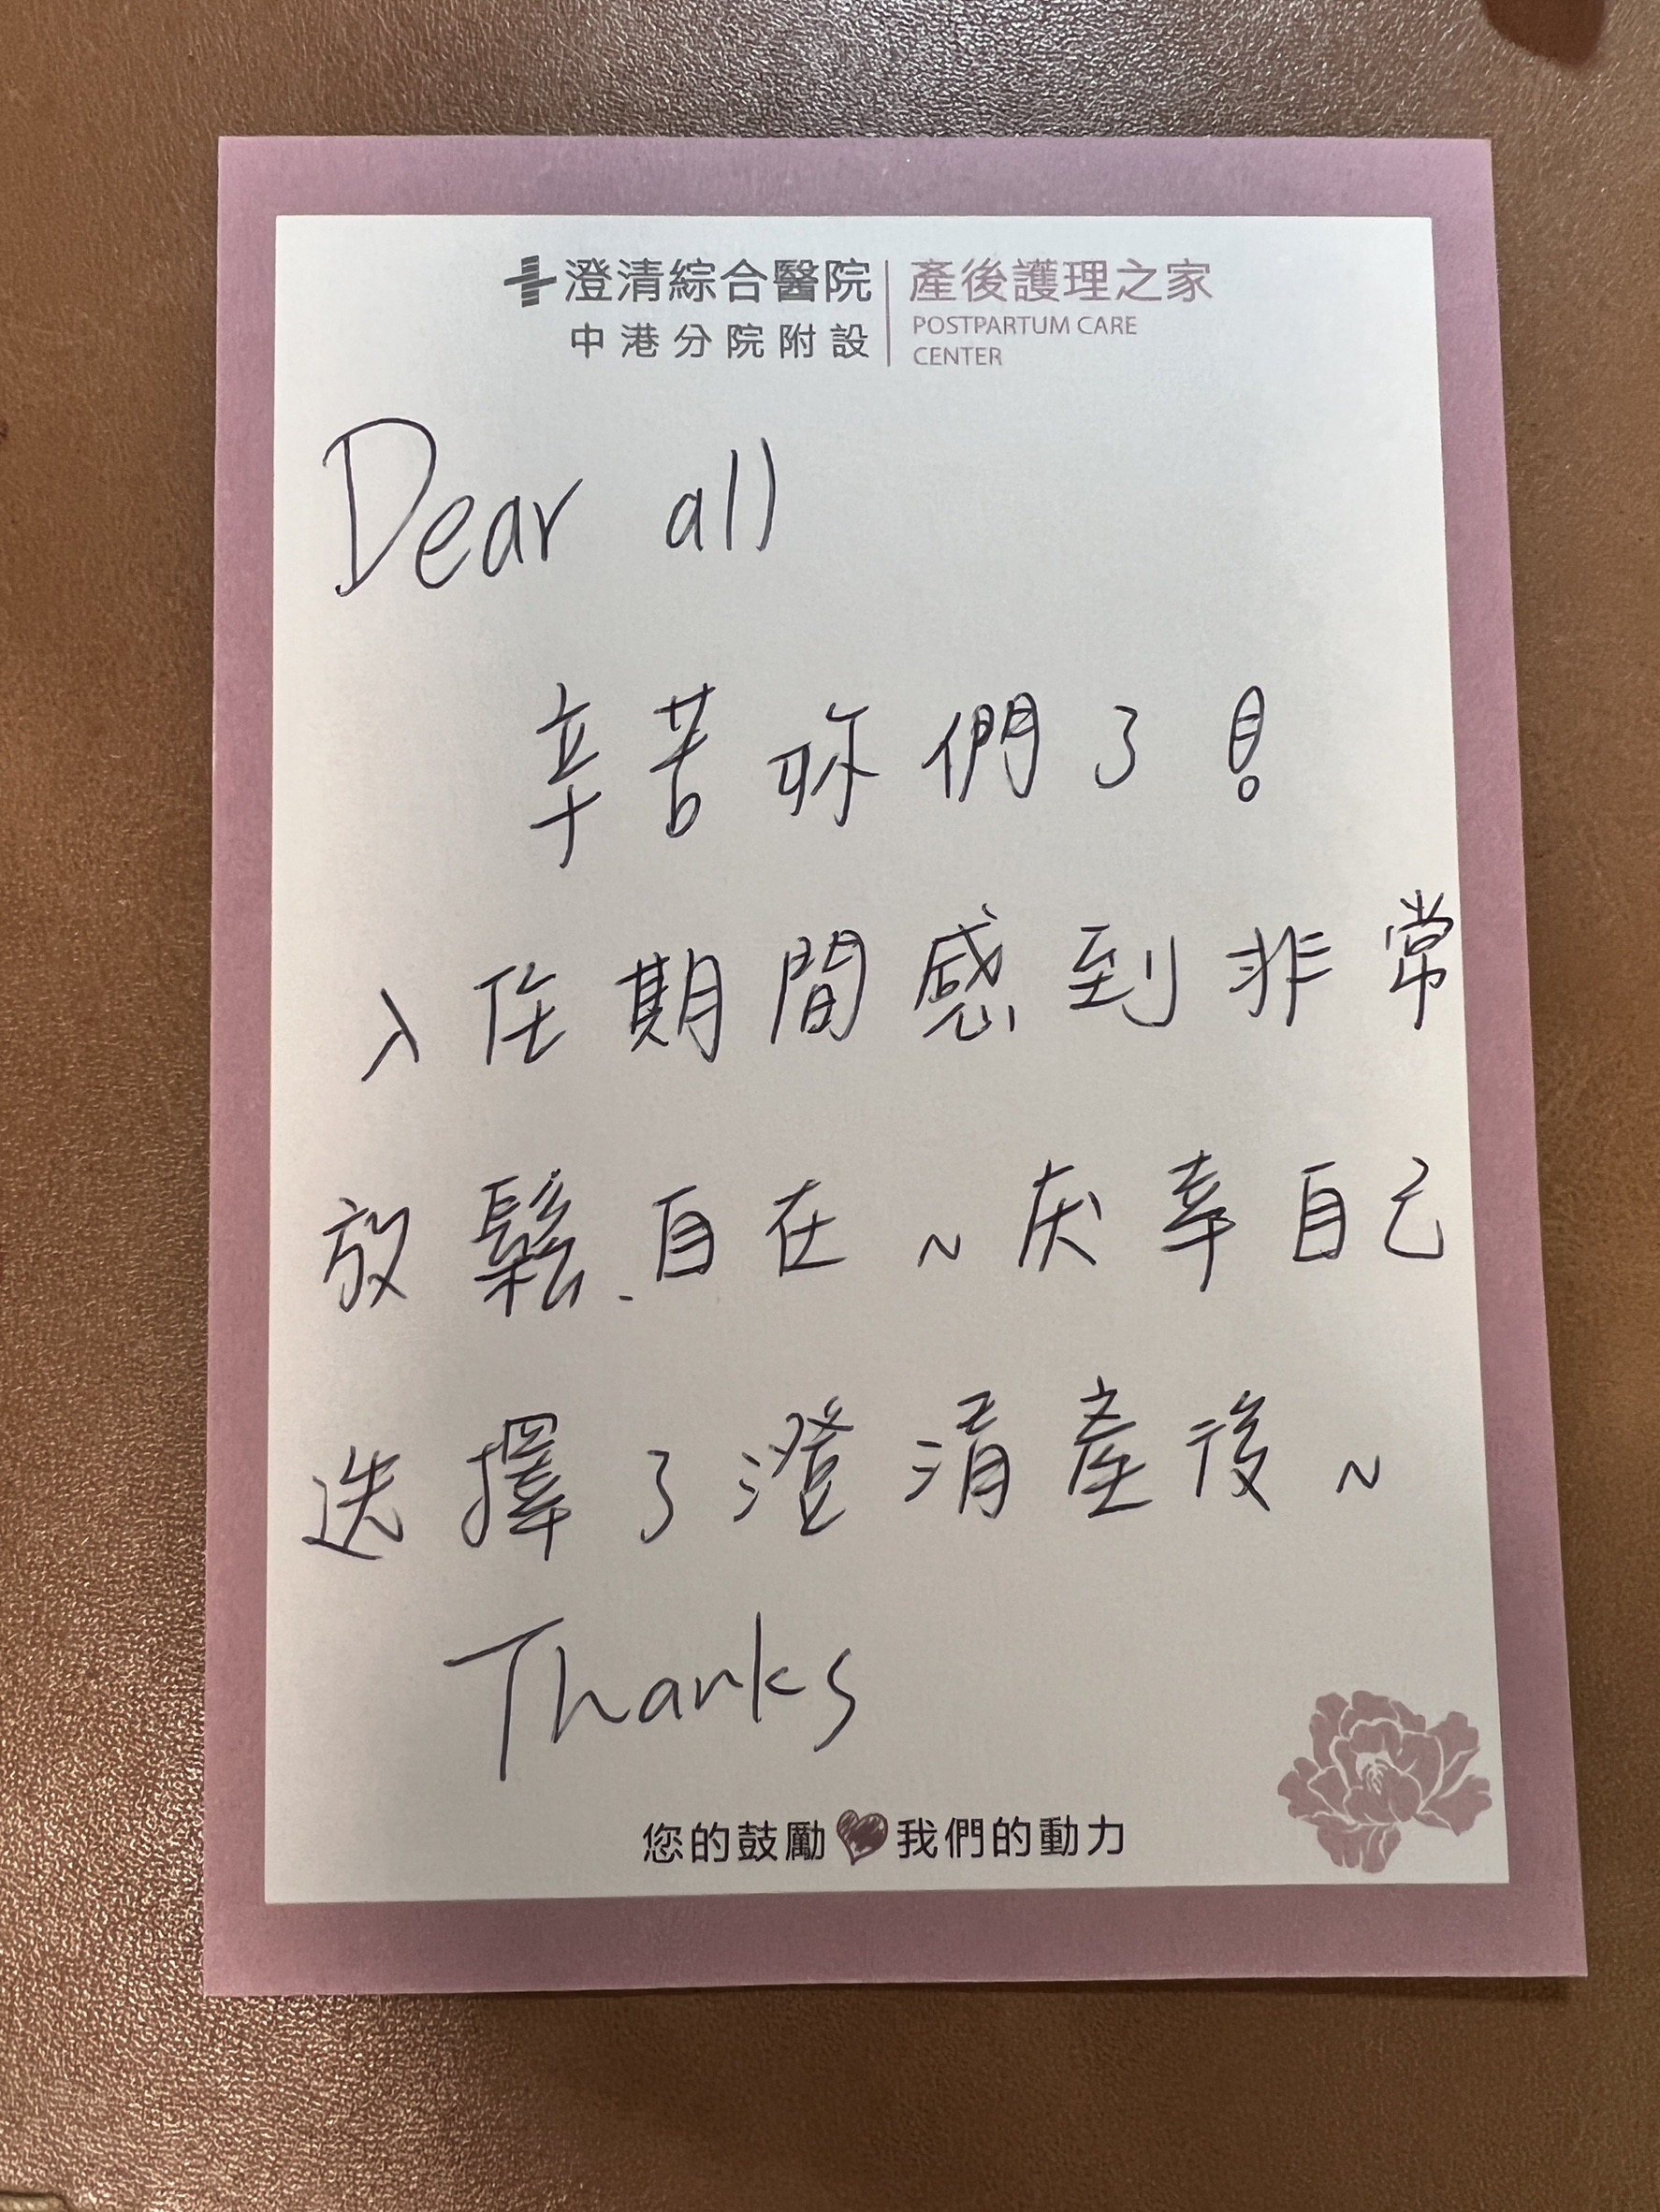 澄清綜合醫院
中港分院附設
產後護理之家
POSTPARTUM CARE
CENTER
Dear all
辛苦妳們了!
入住期間感到非常
放鬆、自在~灰幸自己
选擇了澄清產後~
Thanks
您的鼓勵 我們的動力